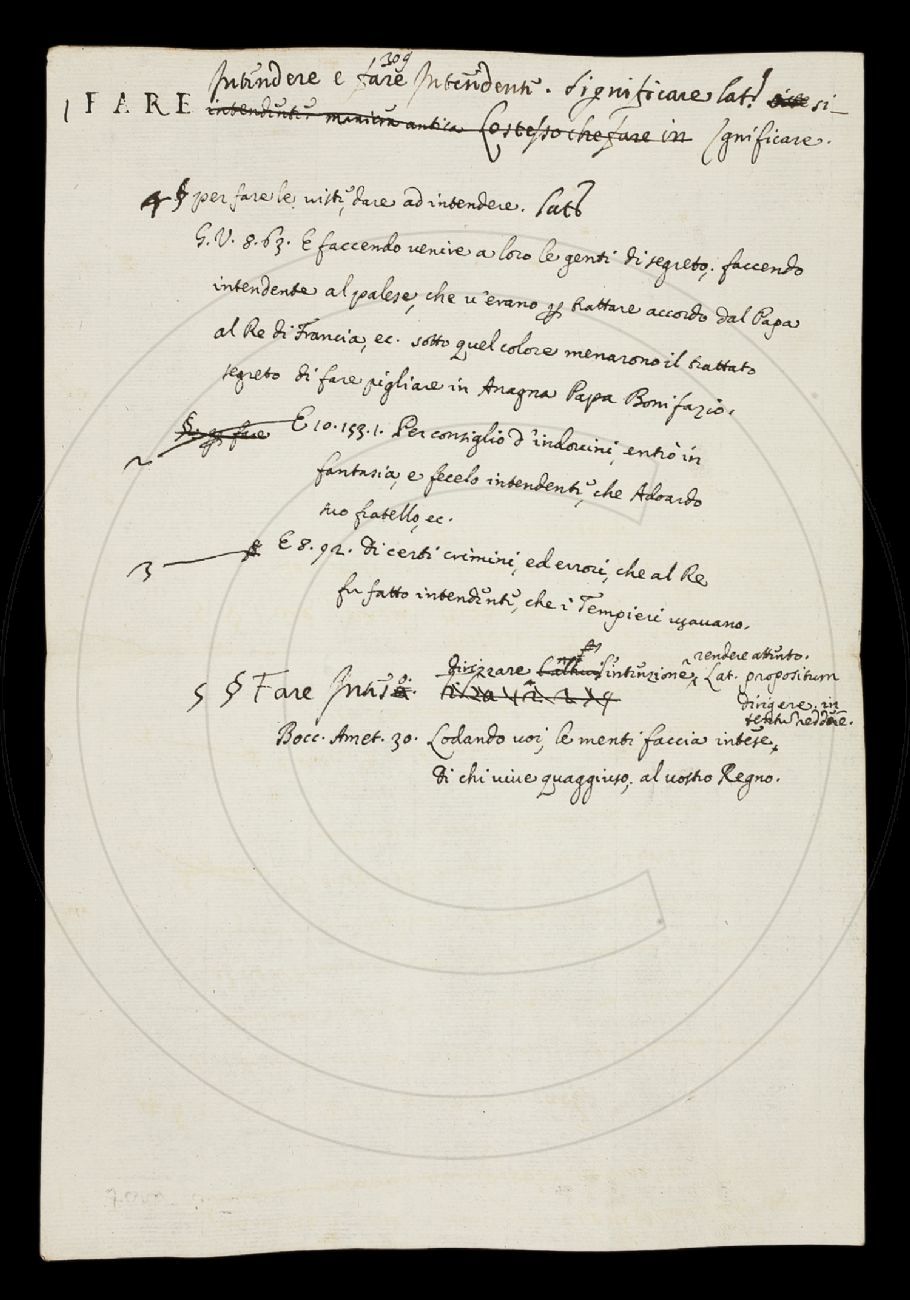 309
Intendere e fare Intendente. Significare lat. si-
1 FARE intendente maniera antica Lo stesso che fare in gnificare.
4 § per fare le viste, dare ad intendere. Lat.
G. V. 8. 63. E faccendo venire a loro le genti di segreto, faccendo
intendente al palese, che v'erano p trattare accordo dal Papa
al Re di Francia, ec. sotto quel colore menarono il trattato
segreto di fare pigliare in Anagna Papa Bonifazio.
2 §. p fare E 10. 153. 1. Per consiglio d'indovini, entrò in
fantasia, e fecelo intendente, che Adoardo
suo fratello, ec.
3 § E 8. 92. Di certi crimini, ed errori, che al Re
fu fatto intendente, che i Tempieri usavano.
dirizzare l'intenzione, rendere attento.
5 § Fare Inteso. Lat. propositum
dirigere, in
tentum reddere.
Bocc. Amet. 30. Lodando voi, le menti faccia intese,
Di chi vive quaggiuso, al vostro Regno.